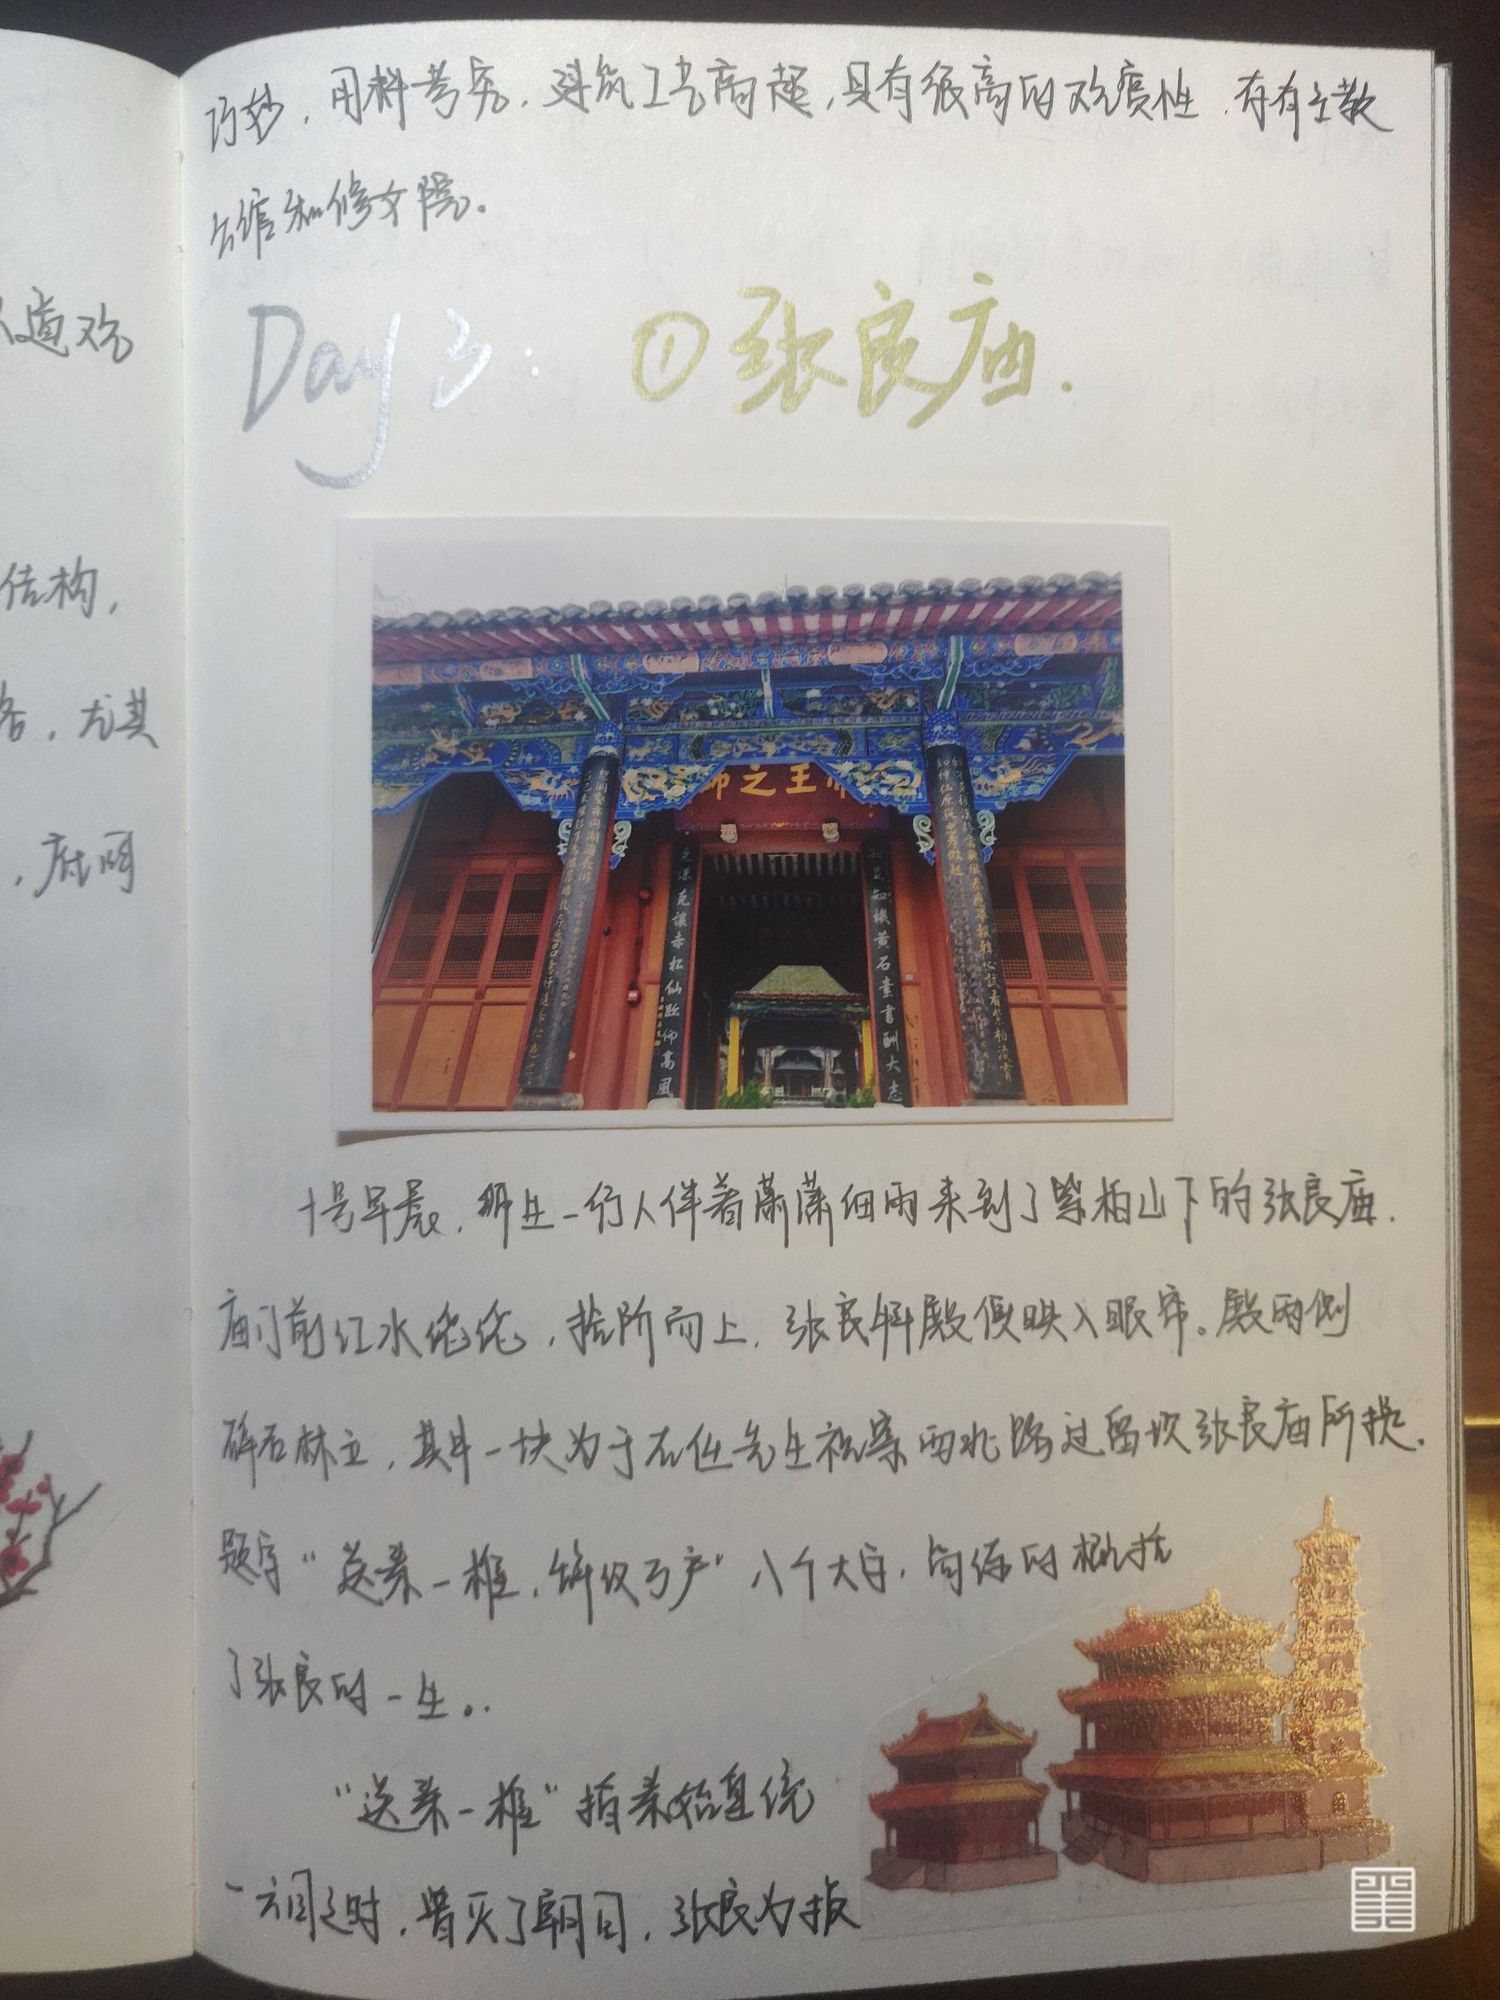 道观
结构，
，尤其
巧妙，用料考究，建筑工艺高超，具有很高的观赏性，存有
公馆和修文院。
Day 3. ①张良庙.
帝王之师
克谦克让赤松仙踪仰高风
知足知机黄石素书酬大志
十号早晨，师生一行人伴着潇潇细雨来到了紫柏山下的张良庙.
庙门前红水，拾阶而上，张良殿便映入眼帘。殿两侧
碑石林立，其中一块为于右任先生视察西北路过留坝张良庙所提.
题字"送秦一椎，辞汉万户"八个大字，简练的概括
了张良的一生。
"送秦一椎"指秦始皇统
一六国之时，曾灭了韩国，张良为报